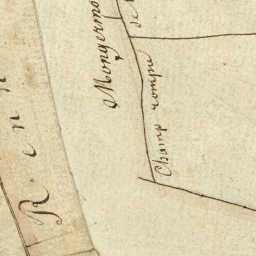 Renn
Mongermo
de
Champ rompu